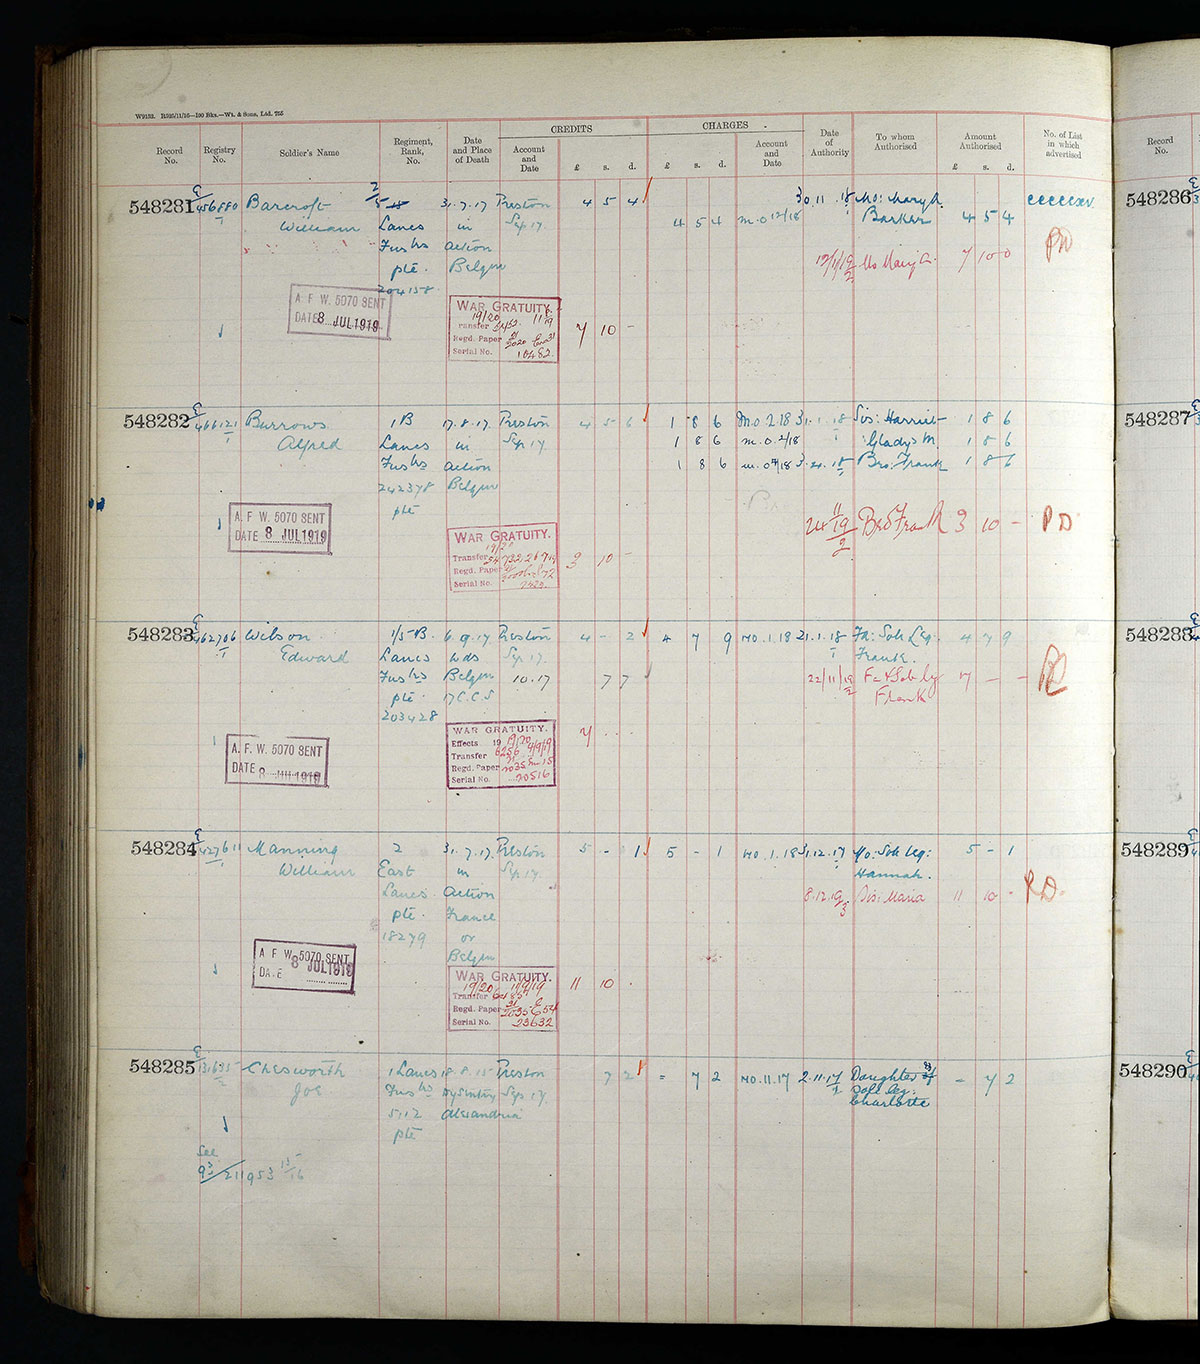 W9153. R925/11/16—100 Bks.—Wt. & Sons, Ltd. 755
CREDITS CHARGES
Record No. Registry No. Soldier's Name Regiment, Rank, No. Date and Place of Death Account and Date £ s. d. £ s. d. Account and Date Date of Authority To whom Authorised Amount Authorised £ s. d. No. of List in which advertised Record No.
548281 E/456880 Barcroft 2/5 31.7.17 Preston 4 5 4 30.11.18 Mo: Mary A. 548286
William Lancs in Sep 17. 4 5 4 M.O 12/18 Barker 4 5 4
Fusrs action
pte. Belgm 12/1/19 Mo Mary A. 7 10 0
204158
A. F. W. 5070 SENT
DATE 8 JUL 1919
WAR GRATUITY.
19/20
Transfer
Regd. Paper
Serial No. 10482.
7 10 -
548282 E/466121 Burrows 1 B 17.8.17. Preston 4 5 6 1 8 6 M.O 2.18 31.1.18 Sis: Harriet 1 8 6 548287
Alfred Lancs in Sep 17. 1 8 6 M.O. 2/18 Gladys M. 1 8 6
Fusrs action 1 8 6 Bro: Frank 1 8 6
242378 Belgm
pte
Bro Frank 3 10 - PD
A. F. W. 5070 SENT
DATE 8 JUL 1919
WAR GRATUITY.
19/20
Transfer
Regd. Paper
Serial No.
3 10 -
548283 E/462706 Wilson 1/5 B. 6.9.17 Preston 4 - 2 4 7 9 MO.1.18 21.1.18 Fa: Sole Leg: 4 7 9 548288
Edward Lancs wds Sep 17. Frank.
Fusrs Belgm 10.17 7 7 22/11/19 Fa & Sole Leg 7 - -
pte. 17 C.C.S Frank
203428
A. F. W. 5070 SENT
DATE 8 JUL 1919
WAR GRATUITY.
Effects 19 19/20
Transfer 4/9/19
Regd. Paper
Serial No. 20516
7 . . .
548284 E/427611 Manning 2 31.7.17. Preston 5 - 1 5 - 1 MO.1.18 31.12.17 Mo: Sole Leg: 5 - 1 548289
William East in Sep 17. Hannah.
Lancs. Action 8.12.19 Sis: Maria 11 10 - PD.
pte. France
18279 or
Belgm
A. F. W. 5070 SENT
DATE 8 JUL 1919
WAR GRATUITY.
19/20 11/9/19
Transfer
Regd. Paper
Serial No. 23632
11 10 .
548285 E/131635 Chesworth 1 Lancs 18.8.15 Preston 7 2 - 7 2 MO.11.17 2.11.17 Daughter - 7 2 548290
Joe Fusrs Dysentery Sep 17. Sole Leg:
5712 Alexandria Charlotte
pte
See
93/211953